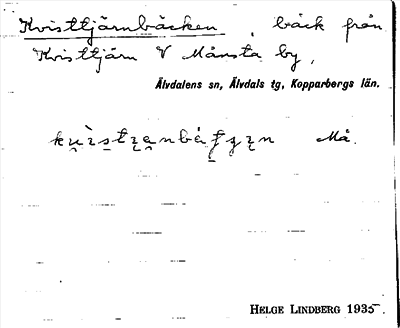 Kvisttjärnbäcken, bäck från
Kvisttjärn V Månsta by,
Älvdalens sn, Älvdals tg, Kopparbergs län.
Må.
HELGE LINDBERG 1935.